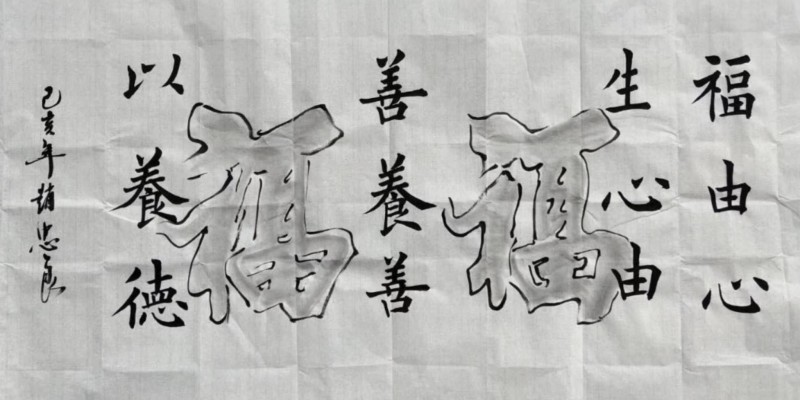 福由心
生心由
善養善
以養德
己亥年趙忠良
福
福